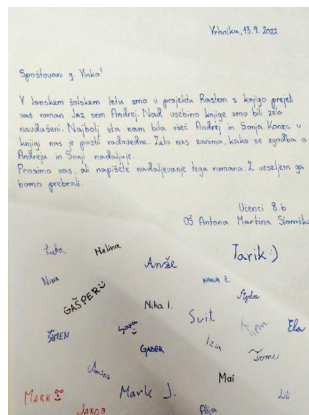 Vrhnika, 13. 9. 2022
Spoštovani g. Vinko!
V lanskem šolskem letu smo v projektu Rastem s knjigo prejeli
vaš roman Jaz sem Andrej. Nad vsebino knjige smo bili zelo
navdušeni. Najbolj sta nam bila všeč Andrej in Sonja. Konec v
knjigi nas je pustil radovedne. Zelo nas zanima, kako se zgodba o
Andreju in Sonji nadaljuje.
Prosimo vas, ali napišete nadaljevanje tega romana. Z veseljem ga
bomo prebrali.
Učenci 8.b
OŠ Antona Martina Slomška
Luka Melina Anže Tarik:)
Nina
GAŠPER Nika I.
Svit Tim Ela
GABER Iza
Mark J. Mai
MARK JAKOB Alja Lili